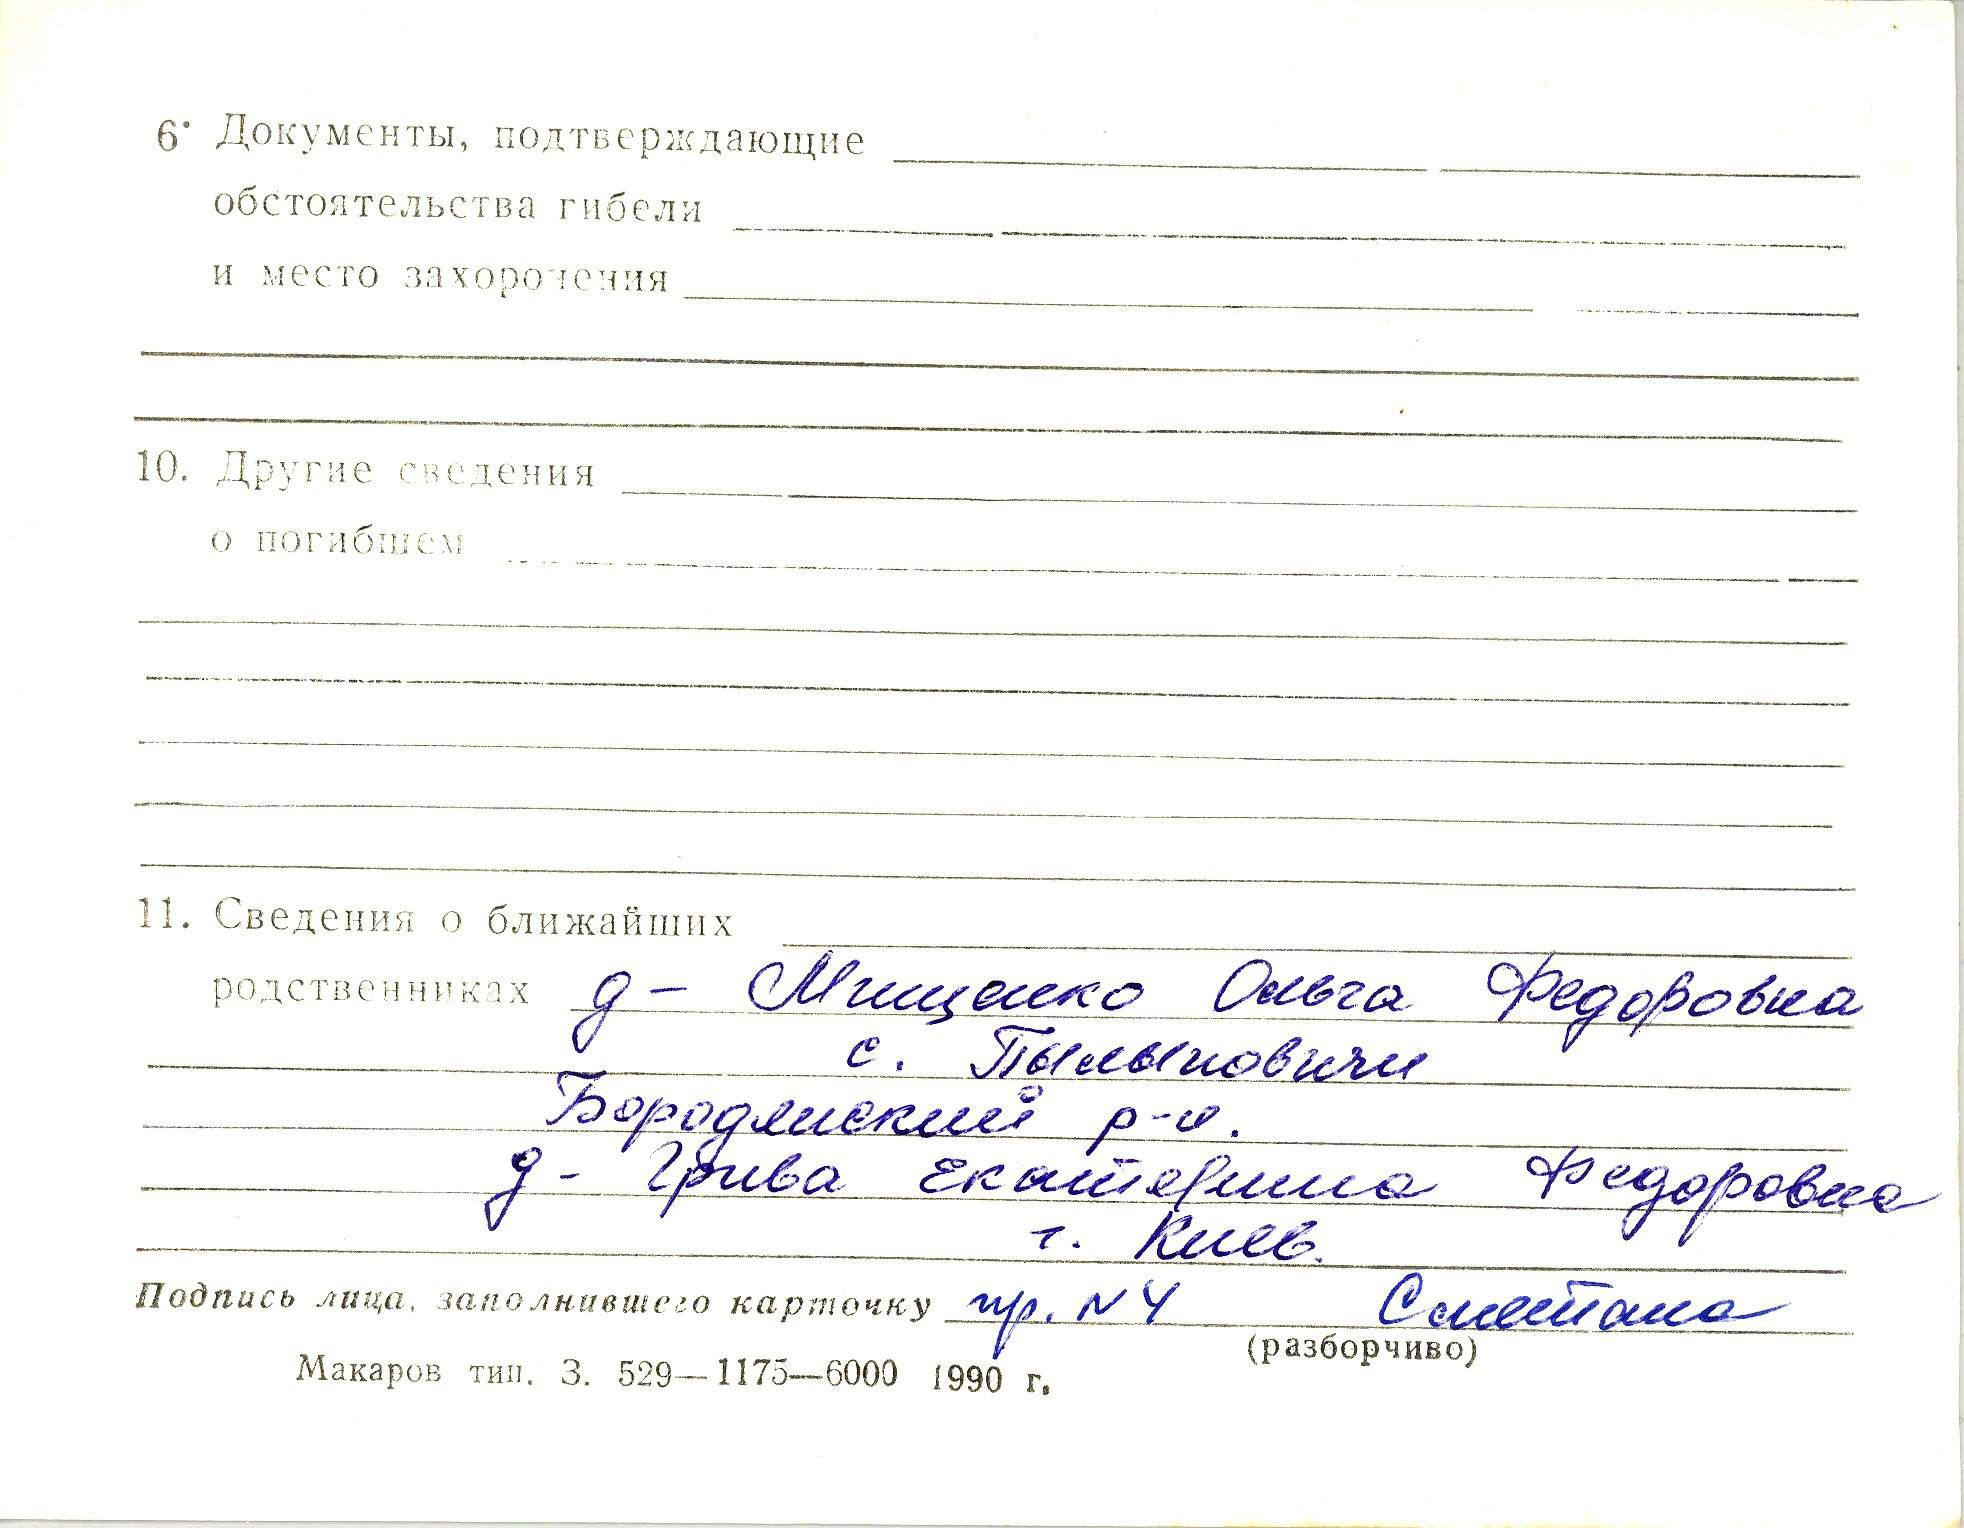 6. Документы, подтверждающие
обстоятельства гибели
и место захоронения
10. Другие сведения
о погибшем
11. Сведения о ближайших
родственниках д - Мищенко Ольга Федоровна
с. Пылыповичи
Бородянский р-н.
д - Грива Екатерина Федоровна
г. Киев.
Подпись лица, заполнившего карточку пр. N 4 Сметана
(разборчиво)
Макаров тип. З. 529—1175—6000 1990 г.